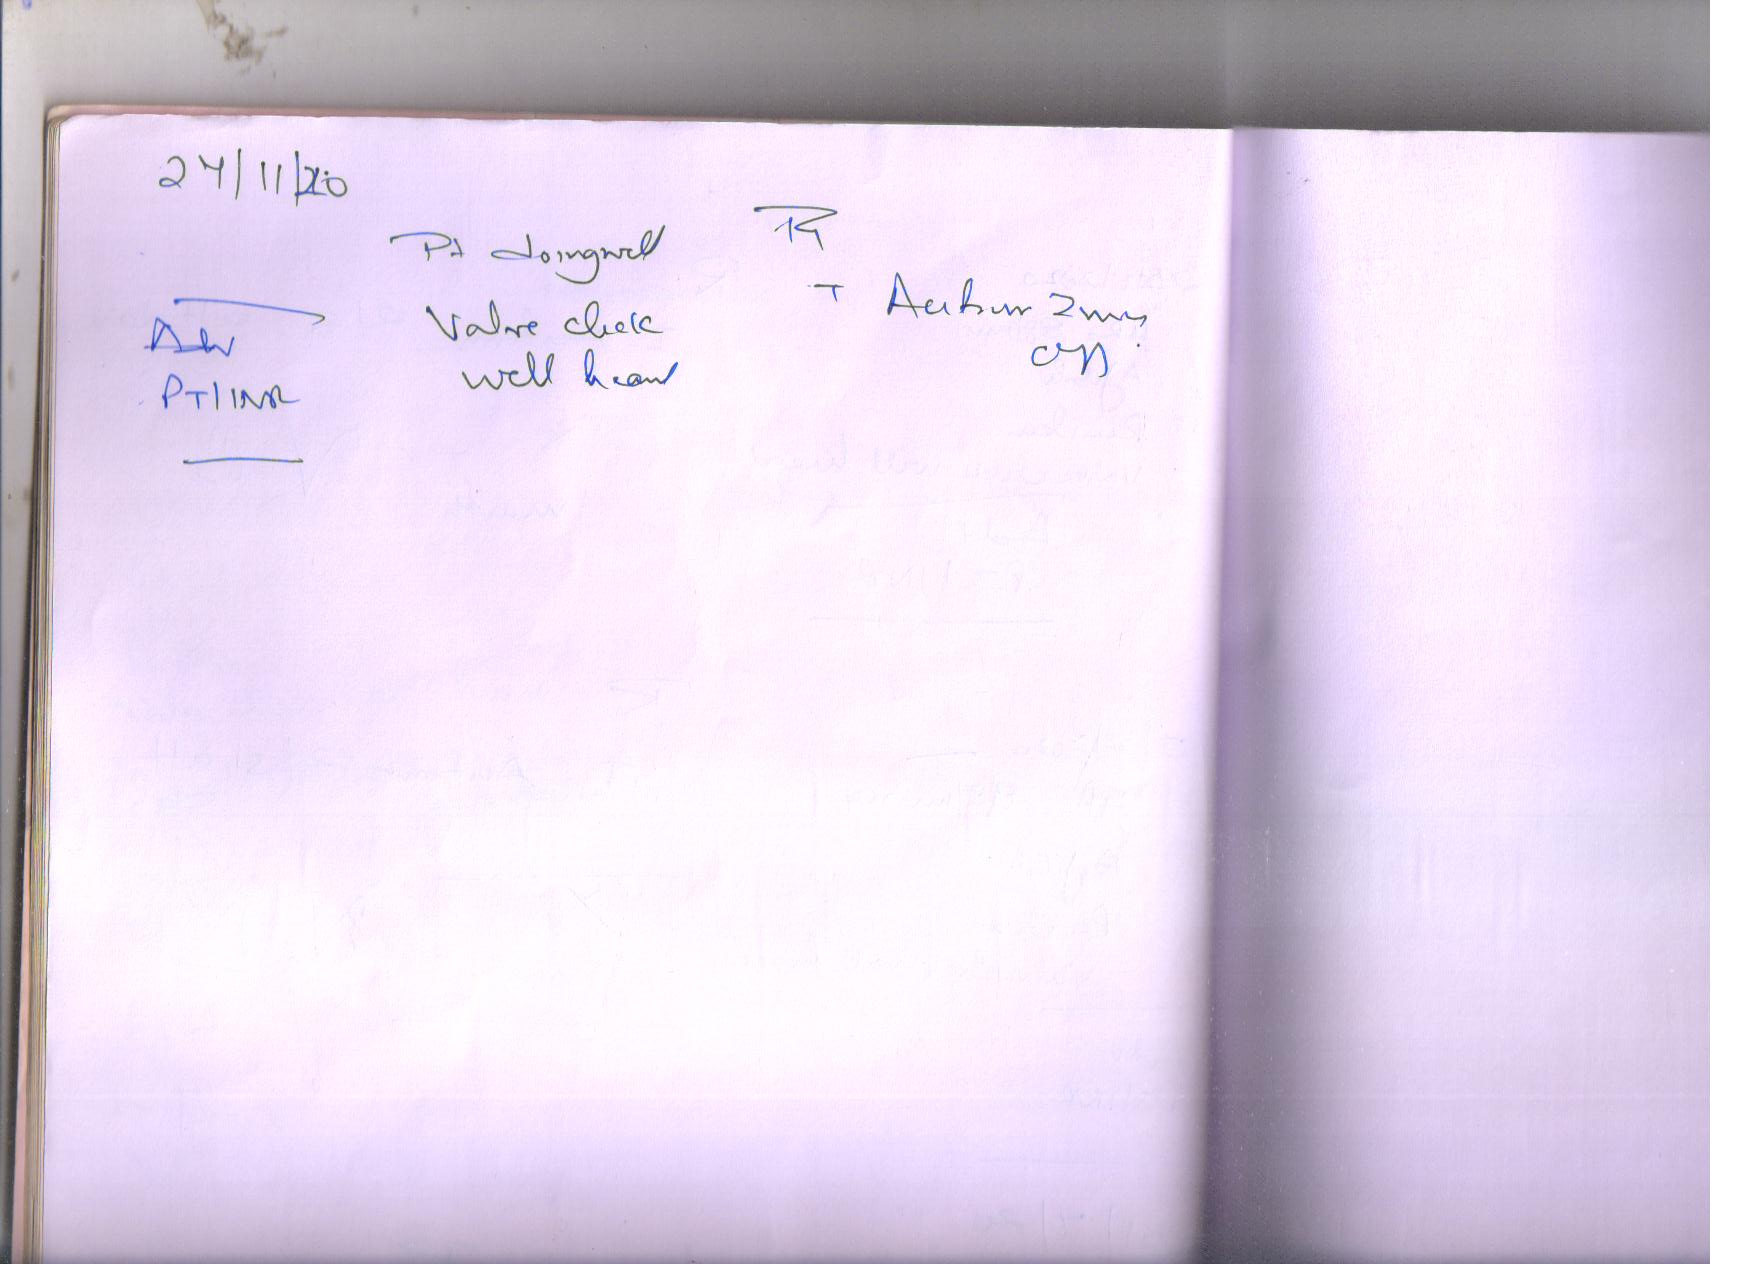 24/11/20
Pt doing well
Valve click
well heard
Adv
PT/INR
Rx
T Acitrom 2mg
OD